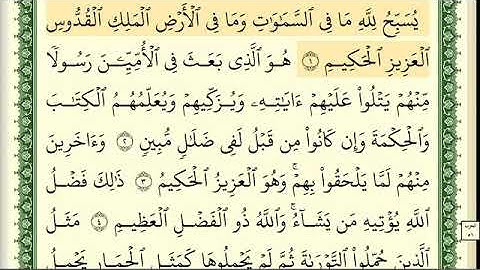 يُسَبِّحُ لِلَّهِ مَا فِى ٱلسَّمَٰوَٰتِ وَمَا فِى ٱلْأَرْضِ ٱلْمَلِكِ ٱلْقُدُّوسِ
ٱلْعَزِيزِ ٱلْحَكِيمِ ١ هُوَ ٱلَّذِى بَعَثَ فِى ٱلْأُمِّيِّـۧنَ رَسُولًا
مِّنْهُمْ يَتْلُوا۟ عَلَيْهِمْ ءَايَٰتِهِۦ وَيُزَكِّيهِمْ وَيُعَلِّمُهُمُ ٱلْكِتَٰبَ
وَٱلْحِكْمَةَ وَإِن كَانُوا۟ مِن قَبْلُ لَفِى ضَلَٰلٍ مُّبِينٍ ٢ وَءَاخَرِينَ
مِنْهُمْ لَمَّا يَلْحَقُوا۟ بِهِمْ ۚ وَهُوَ ٱلْعَزِيزُ ٱلْحَكِيمُ ٣ ذَٰلِكَ فَضْلُ
ٱللَّهِ يُؤْتِيهِ مَن يَشَآءُ ۚ وَٱللَّهُ ذُو ٱلْفَضْلِ ٱلْعَظِيمِ ٤ مَثَلُ
ٱلَّذِينَ حُمِّلُوا۟ ٱلتَّوْرَىٰةَ ثُمَّ لَمْ يَحْمِلُوهَا كَمَثَلِ ٱلْحِمَارِ يَحْمِلُ